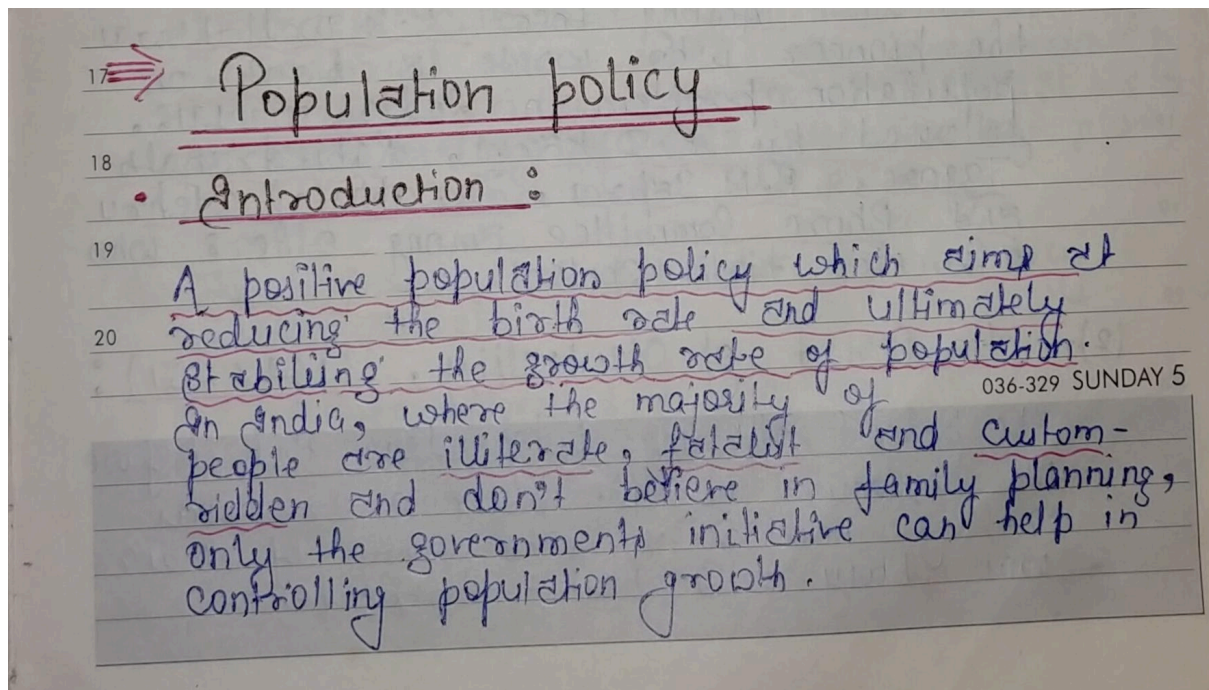 17 ⇒ Population policy
18
• Introduction :
19
A positive population policy which aims at
20 reducing the birth rate and ultimately
stabilising the growth rate of population.
036-329 SUNDAY 5
In India, where the majority of
people are illiterate, fatalist and custom-
ridden and don't believe in family planning,
only the governments initiative can help in
controlling population growth.